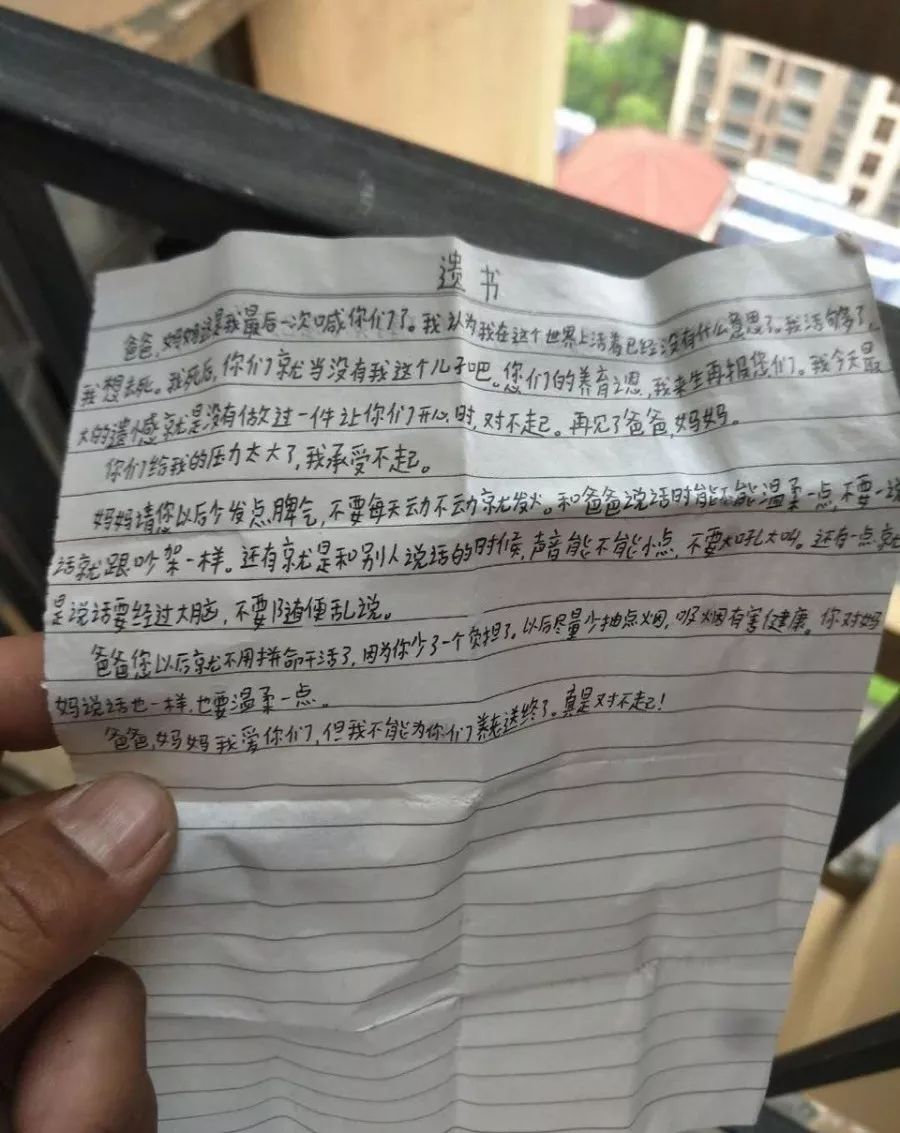 遗书
爸爸,妈妈这是我最后一次喊你们了。我认为我在这个世界上活着已经没有什么意思了。我活够了,
我想去死。我死后,你们就当没有我这个儿子吧。您们的养育之恩,我来生再报您们。我今天最
大的遗憾就是没有做过一件让你们开心时,对不起。再见了爸爸,妈妈。
你们给我的压力太大了,我承受不起。
妈妈请您以后少发点脾气,不要每天动不动就发火。和爸爸说话时能不能温柔一点,不要一说
话就跟吵架一样。还有就是和别人说话的时候,声音能不能小点,不要大吼大叫。还有一点就
是说话要经过大脑,不要随便乱说。
爸爸您以后就不用拼命干活了,因为你少了一个负担了。以后尽量少抽点烟,吸烟有害健康。你对妈
妈说话也一样,也要温柔一点。
爸爸,妈妈我爱你们,但我不能为你们养老送终了。真是对不起!